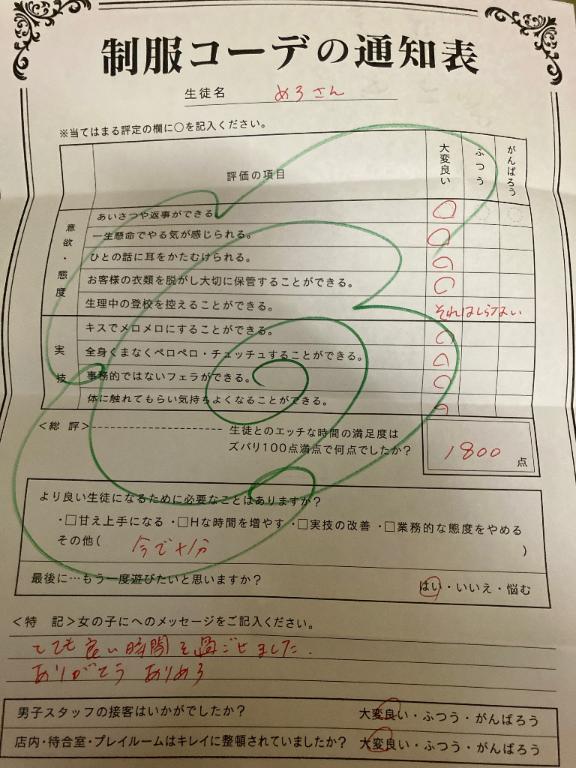 制服コーデの通知表
生徒名 めろさん
※当てはまる評定の欄に○を記入ください。
評価の項目 大変良い ふつう がんばろう
意欲・態度
あいさつや返事ができる。
一生懸命でやる気が感じられる。
ひとの話に耳をかたむけられる。
お客様の衣類を脱がし大切に保管することができる。
生理中の登校を控えることができる。 それはしらない
実技
キスでメロメロにすることができる。
全身くまなくペロペロ・チュッチュすることができる。
事務的ではないフェラができる。
体に触れてもらい気持ちよくなることができる。
<総 評> 生徒とのエッチな時間の満足度は
ズバリ100点満点で何点でしたか? 1800点
より良い生徒になるために必要なことはありますか?
・□甘え上手になる ・□Hな時間を増やす ・□実技の改善 ・□業務的な態度をやめる
その他( 今で十分 )
最後に…もう一度遊びたいと思いますか? はい・いいえ・悩む
<特 記>女の子にへのメッセージをご記入ください。
とても良い時間を過ごせました.
ありがとう ありめろ
男子スタッフの接客はいかがでしたか? 大変良い・ふつう・がんばろう
店内・待合室・プレイルームはキレイに整頓されていましたか? 大変良い・ふつう・がんばろう